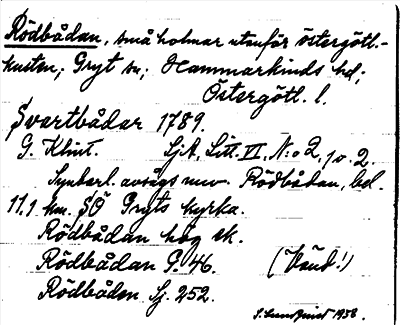 Rödbådan, små holmar utanför Östergötl.-
kusten; Gryt sn; Hammarkinds hd;
Östergötl. l.
Svartbådar 1789.
G. Klint. SjA, Litt. VI, N:o 2, 2.
avsågs Rödbådan, bel.
11.1 km. SÖ Gryts kyrka.
Rödbådan hög sk.
Rödbådan G. 46. (Vänd!)
Rödbådan Sj. 252.
S. Lundquist 1938.